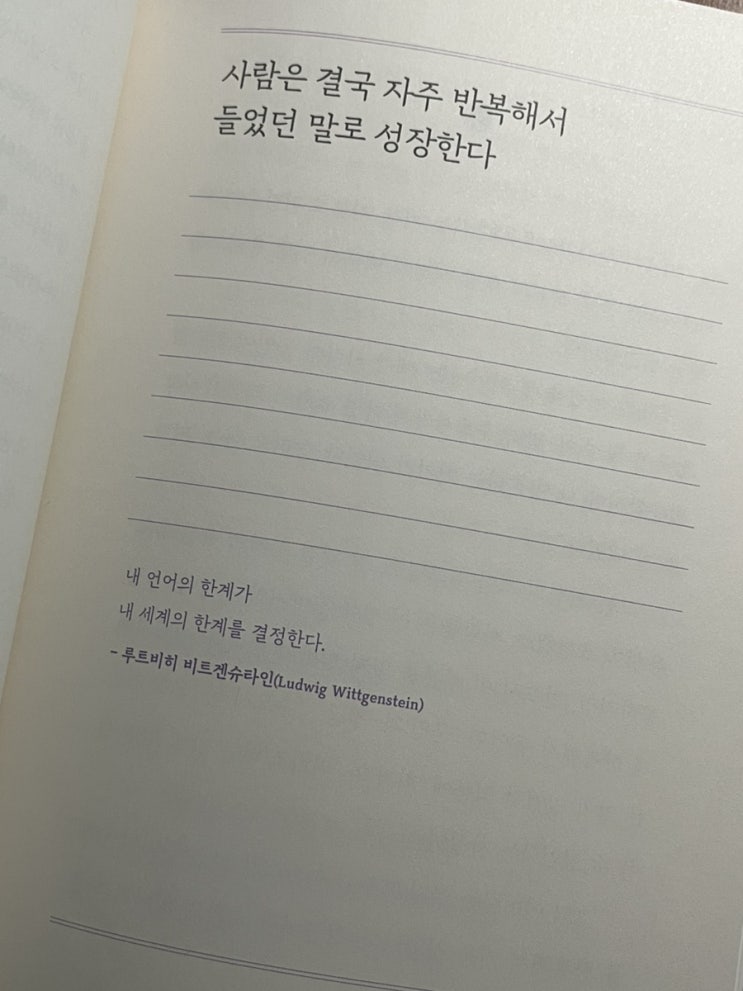 사람은 결국 자주 반복해서
들었던 말로 성장한다
내 언어의 한계가
내 세계의 한계를 결정한다.
- 루트비히 비트겐슈타인(Ludwig Wittgenstein)